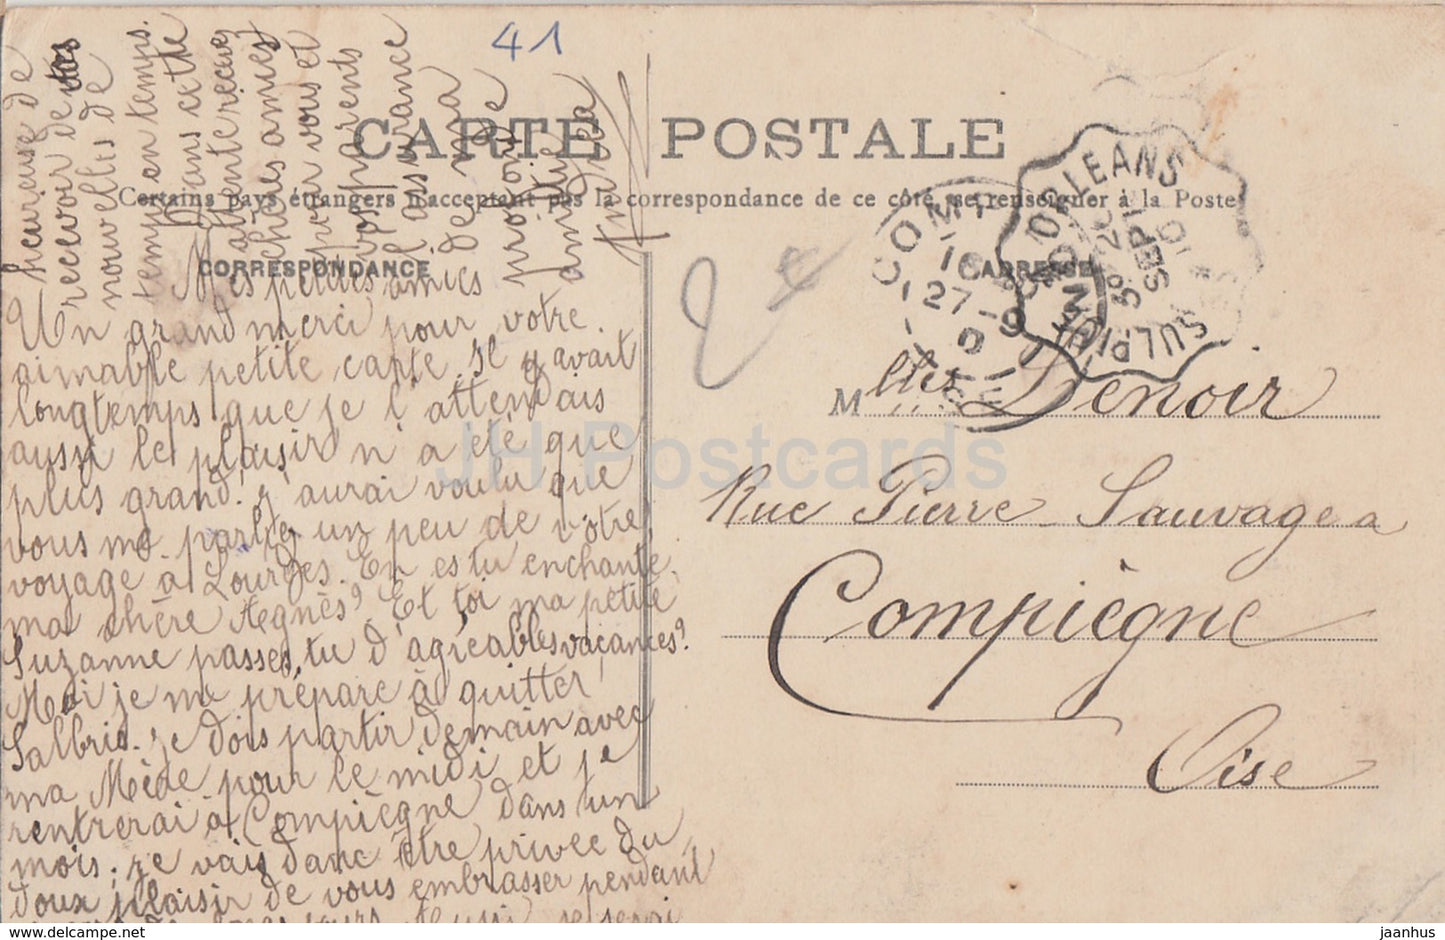 41
CARTE POSTALE
Certains pays étrangers n'acceptent pas la correspondance de ce côté, se renseigner à la Poste
CORRESPONDANCE
ADRESSE
Mes petites amies
Un grand merci pour votre
aimable petite carte. Il y avait
longtemps que je l'attendais
aussi le plaisir n'a été que
plus grand. J'aurai voulu que
vous me parliez un peu de votre
voyage à Lourdes. En es tu enchanté
ma chère Agnès? Et toi ma petite
Suzanne passes tu d'agréables vacances?
Moi je me prépare à quitter
Salbris. Je dois partir demain avec
ma Mère pour le midi et je
rentrerai à Compiègne dans un
mois; je vais danc être privée du
doux plaisir de vous embrasser pendant
jours Aussi je serai
heureuse de
recevoir de
nouvelles de
temp en temps.
Dans cette
attente recevez
chères amies
pour vous et
vos parents
l'assurance
de ma
profonde
amitié
Andréa
Mlles Lenoir
Rue Pierre Sauvage a
Compiègne
Oise
ORLEANS
SULPICE
5° 26
SEPT
10
COMP
16
27-9
OISE
JH Postcards
www.delcampe.net
jaanhus